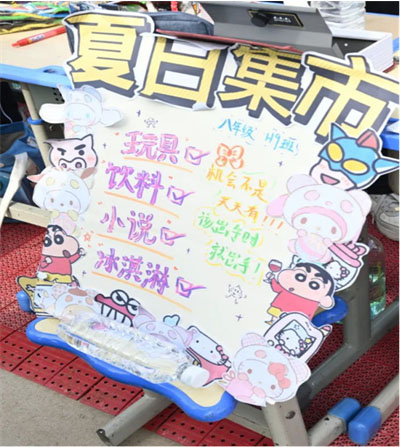 夏日集市
八年级 H9班!
玩具
饮料
小说
冰淇淋
机会不是
天天有!!!
该出手时
就出手!